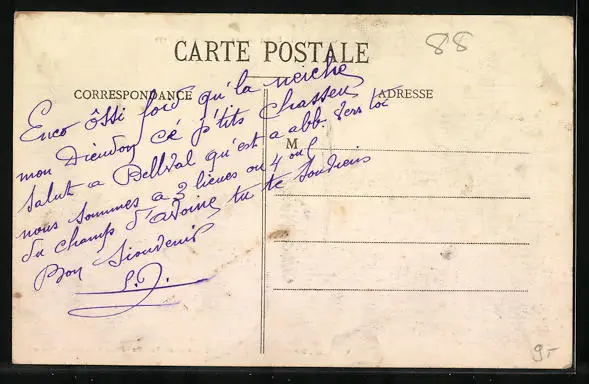 CARTE POSTALE
88
CORRESPONDANCE
ADRESSE
M
Enco ôssi foid qu'la neiche
mon Dieudon cé p'tits chasseu
Salut a Bellval qu'est a abb.
nous sommes a 3 lieues ou 4 ou
du champs d'avoine tu te souviens
Bon Siouvenir
9-